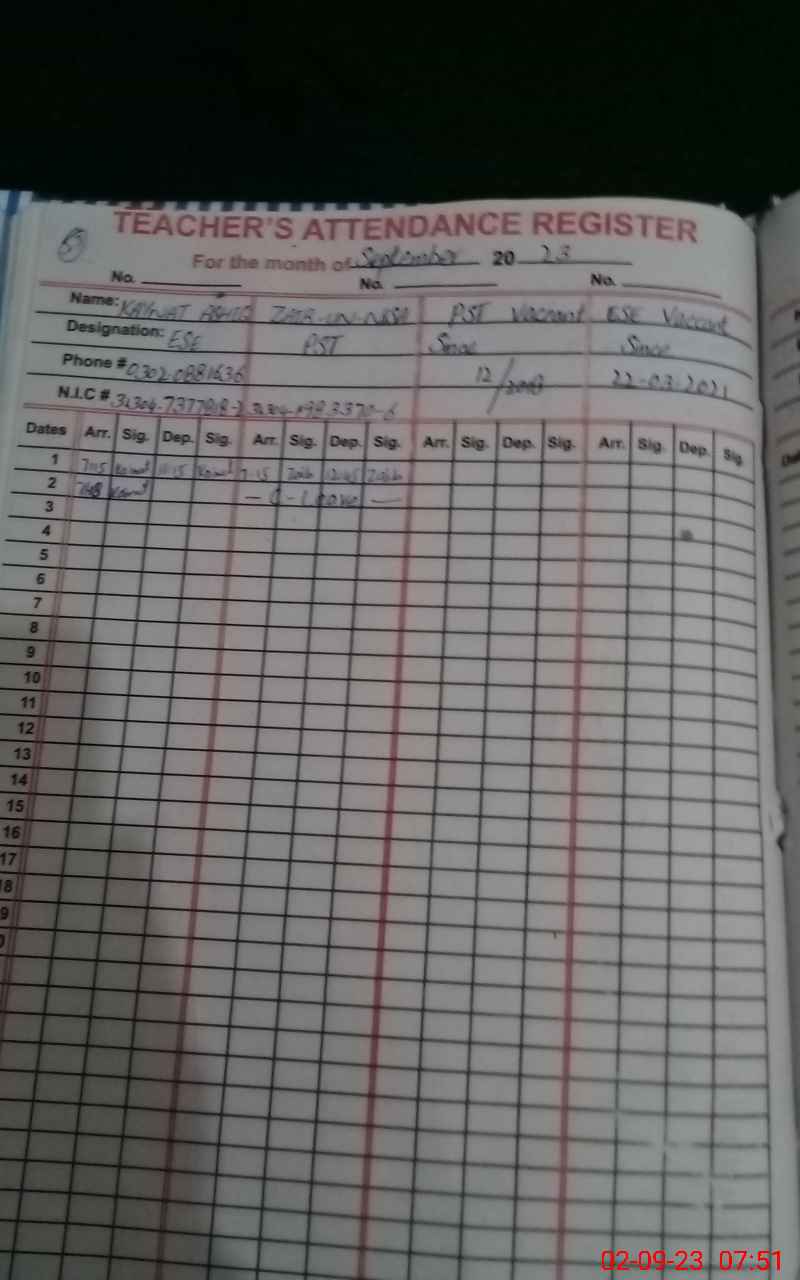 5
TEACHER'S ATTENDANCE REGISTER
For the month of September 20 23
No. No. No.
Name: KAYNAT ZAIB-UN-NISA PST Vacant ESE Vaccant
Designation: ESE PST Since Since
Phone # 0302 0881636 12/2018 22-03-2021
N.I.C #
Dates Arr. Sig. Dep. Sig. Arr. Sig. Dep. Sig. Arr. Sig. Dep. Sig. Arr. Sig. Dep. Sig
1 7:15 Kainat 11:15 Kainat 7:15 Zaib 12:45 Zaib
2 Kainat - C - Leave -
3
4
5
6
7
8
9
10
11
12
13
14
15
16
17
18
9
02-09-23 07:51